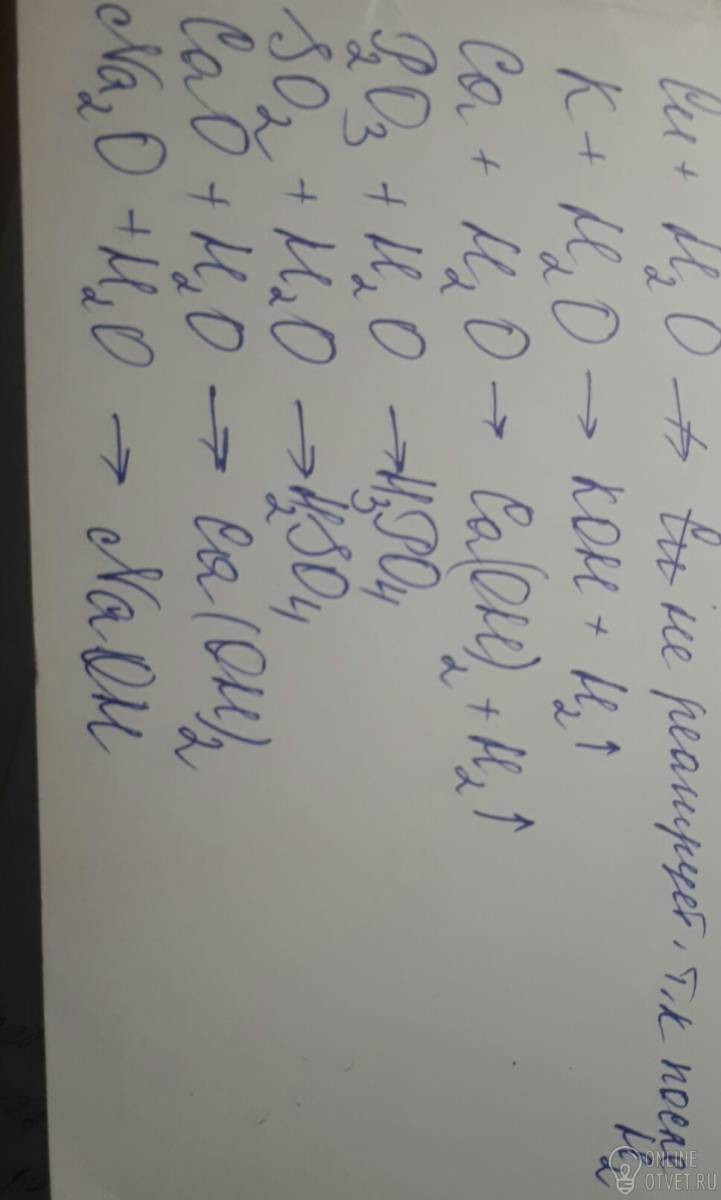 Cu + H₂O ↛ не реагирует, т.к после
H₂
K + H₂O → KOH + H₂↑
Ca + H₂O → Ca(OH)₂ + H₂↑
P₂O₃ + H₂O → H₃PO₄
SO₂ + H₂O → H₂SO₄
CaO + H₂O → Ca(OH)₂
Na₂O + H₂O → NaOH
ONLINE
OTVET.RU